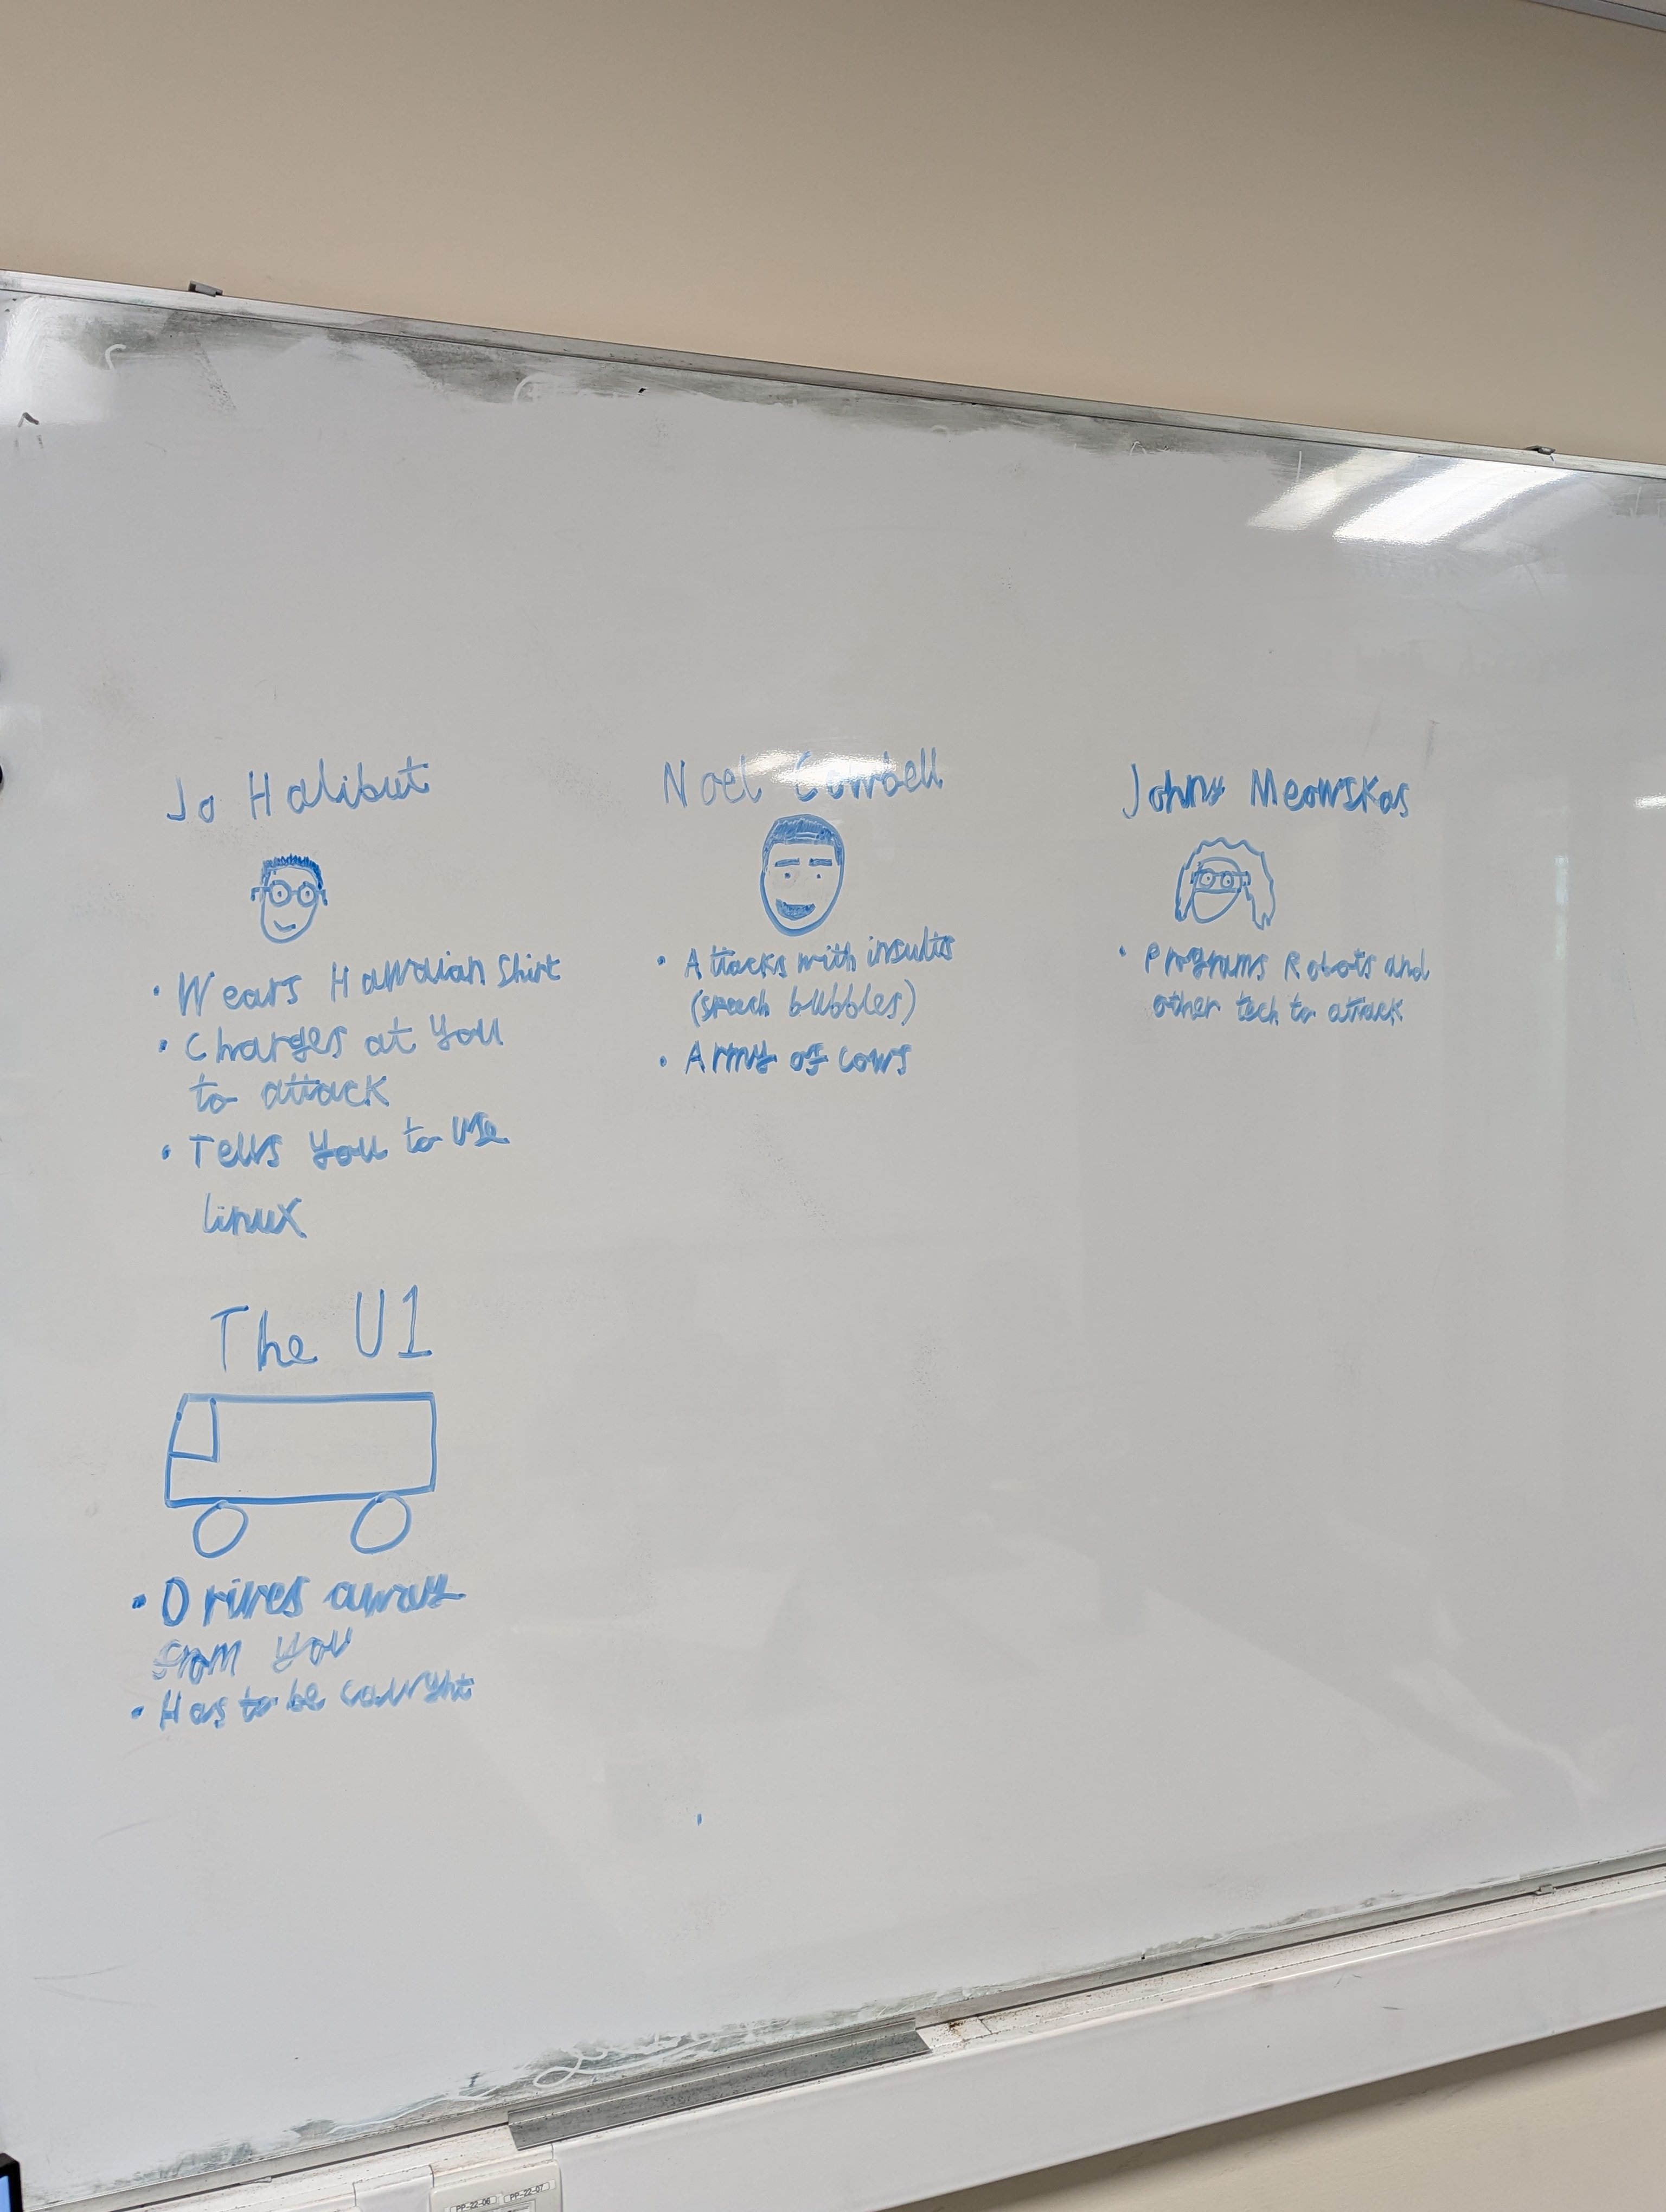 Jo Halibut
• Wears Hawaiian Shirt
• Charges at you
to attack
• Tells you to use
linux
Noel Cowbell
• Attacks with insults
(speech bubbles)
• Army of cows
Johny Meowskas
• Programs Robots and
other tech to attack
The U1
• Drives away
from you
• Has to be caught
PP-22-06 PP-22-07